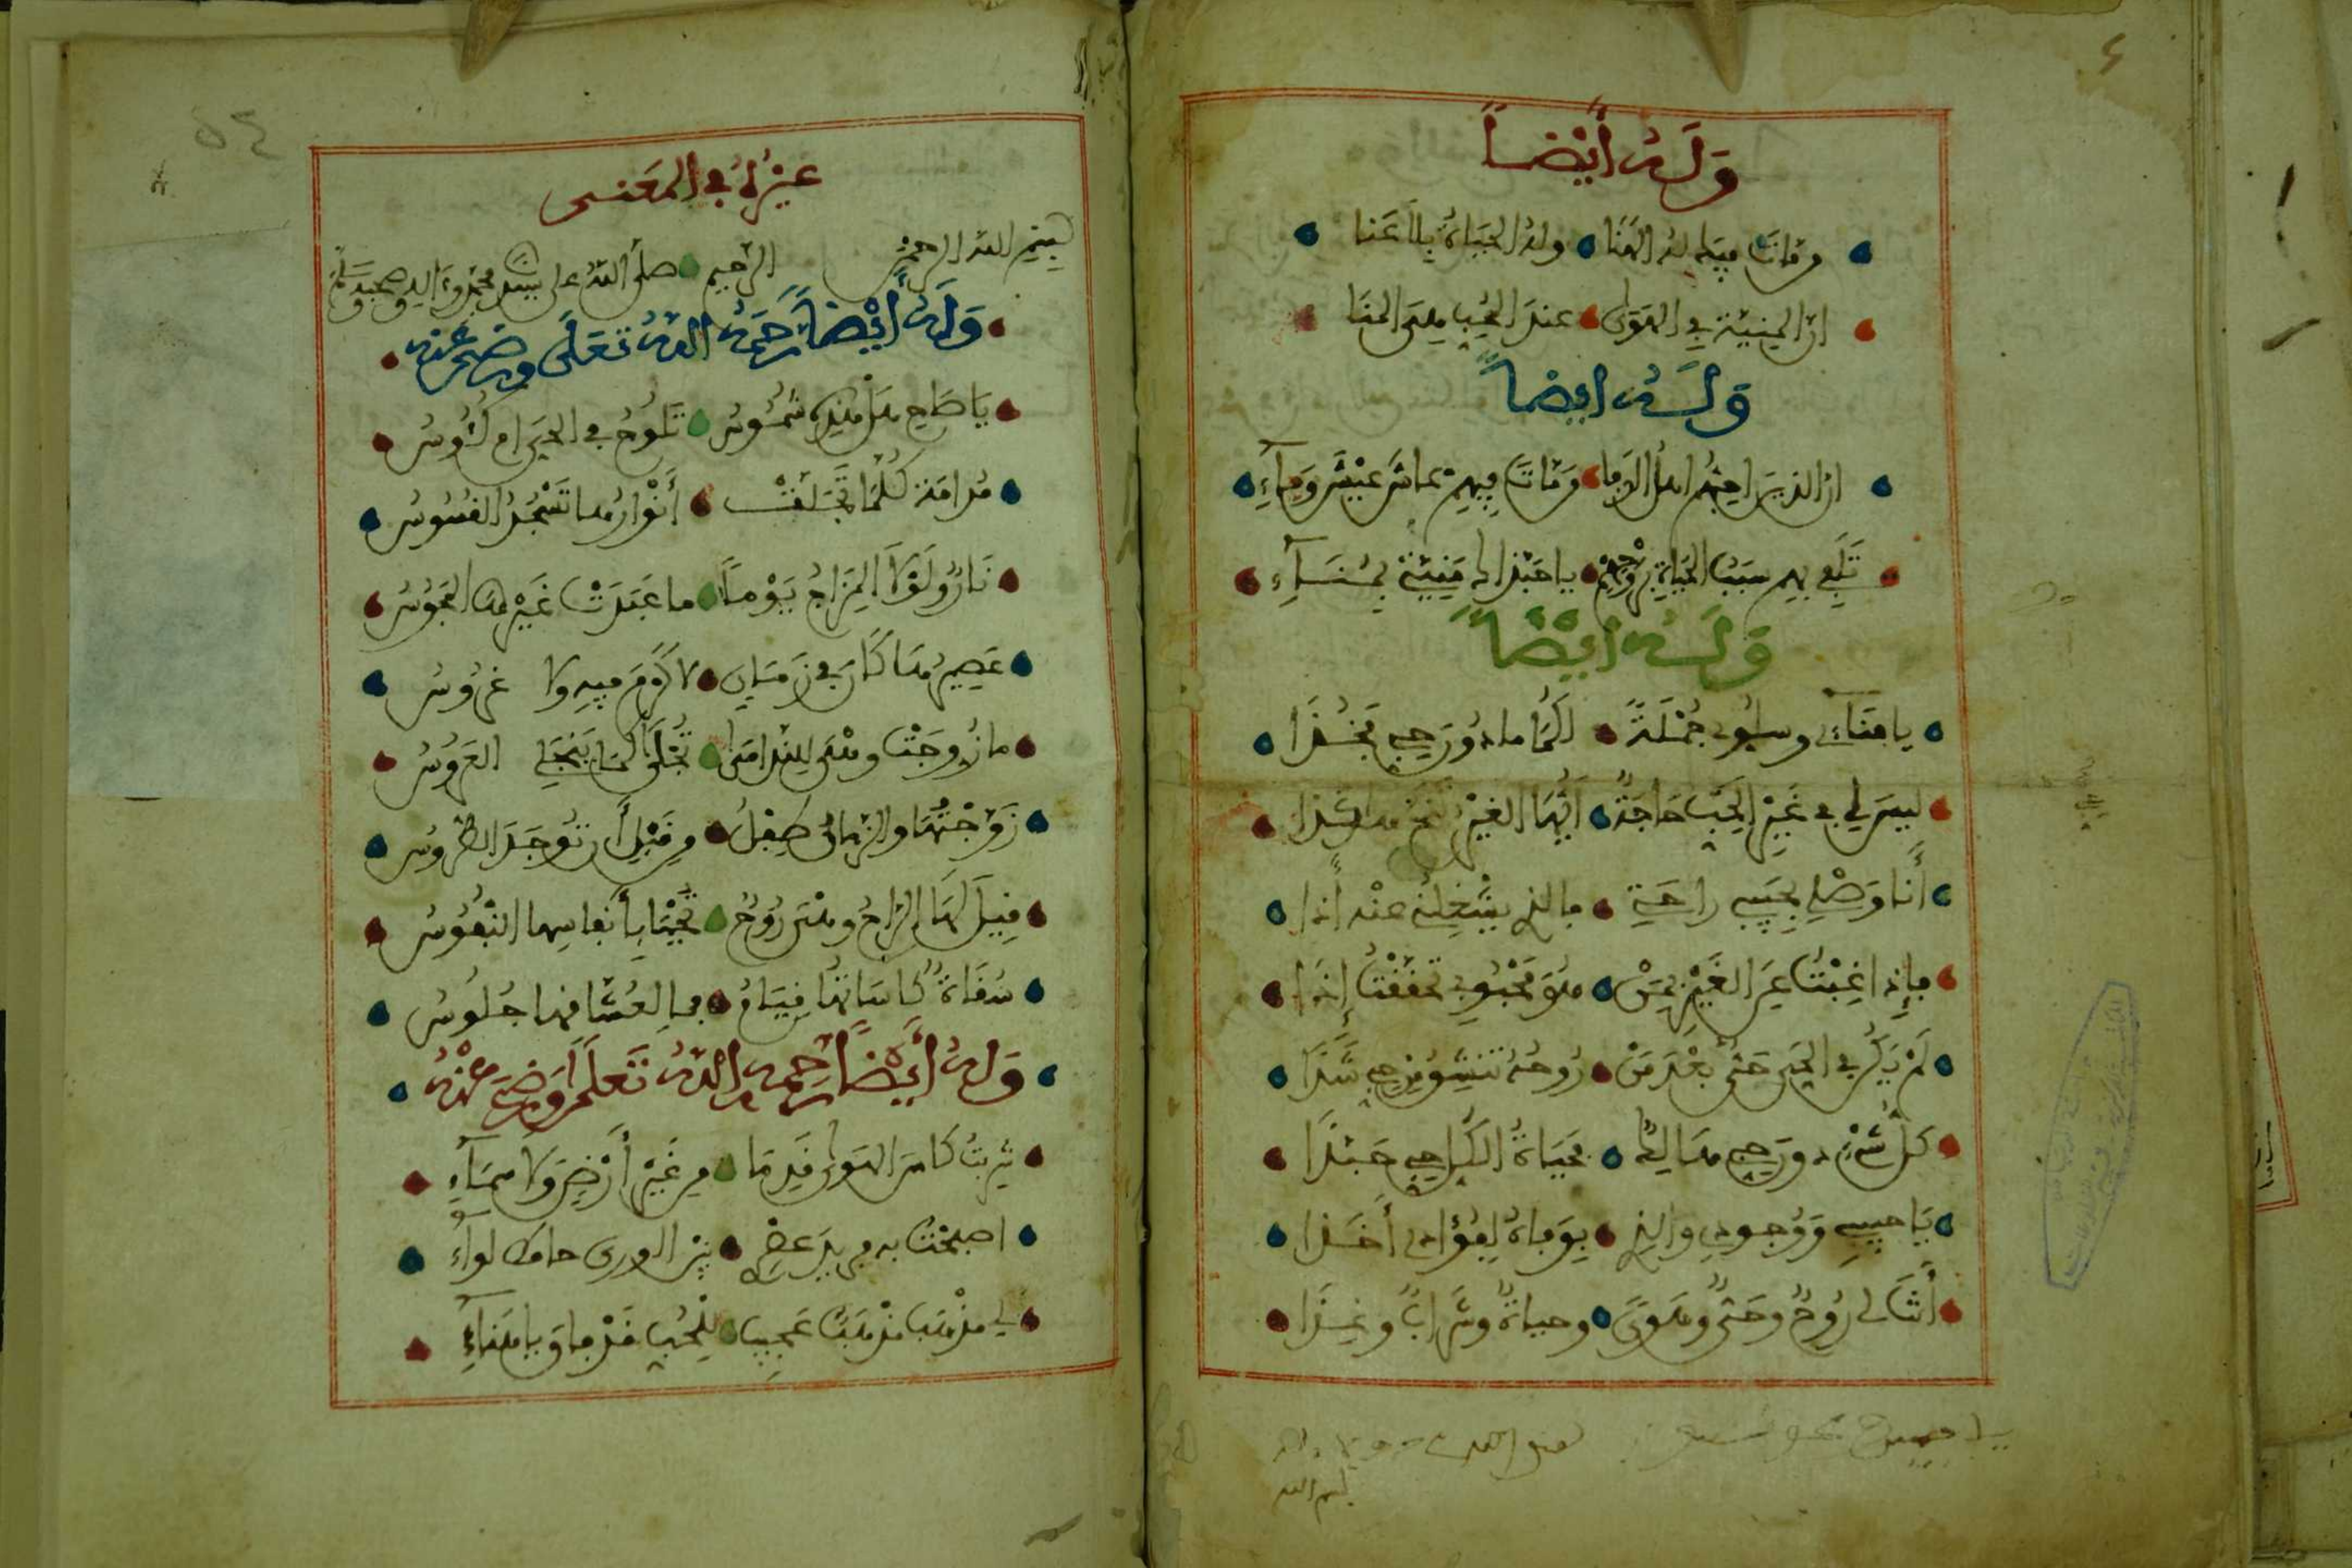 وَلَهُ أَيْضاً
وفاتَ فيه له الهَنَا وله الحياةُ بلا عَنا
ان المنية في الهوى عند المحب هي المنا
وَلَهُ أيضاً
ان الذين احبهم اهل الوفا من مات فيهم عاش عيش وفاء
تلفي بهم سبب الحياة يا حبذا لو منيتي
وَلَهُ أَيْضاً
يا هناءي وسلوي جُمْلَةً روحي فخُذَا
ليس لي في غَيْرِ الحب حَاجَةٌ ايها الغير تَنَحَّ هاكذا
أَنا وَصْلي بحبيبي راحتي والذي يشغلني عنه أذا
فإذا غِبْتُ عن الغَيْر بمَنْ هُوَ مَحْبُوبي تحققتُ إذَا
لَمْ يَكُنْ في الحَيِّ حَيٌّ بَعْدَ مَنْ رُوحُهُ شَذَا
كلُّ شَيْءٍ دون روحي هالكٌ فحَيَاةُ حَبَّذَا
يَا حبيبي وَوُجودي والذي بوفاهُ لفُؤادي أَخَذا
أَنْتَ لي رُوحٌ وحَيٌّ وهَوًى وحياةٌ وشرابٌ وغِذَا
غيره في المعنى
بسم الله الرحمن الرحيم صلى الله على سيدنا محمد وءاله وصحبه وسلم
وَلَهُ أَيْضاً رَحِمَهُ اللهُ تَعَلَى ورضي عنه
يَا صَاحِ هل هذه شُمُوسُ تَلُوحُ في الحي ام كُئُوسُ
مُدامَة كُلَّمَا تجَلَّتْ أَنْوارُها تَسْجُدُ القُسُوسُ
نَارٌ ولَوْلَا المِزَاجُ يَوْماً ما عَبَدَتْ غَيْرَها المَجُوسُ
عَصِيرُها كَانَ في زَمَانٍ لا كَرْمَ فيه ولا غُرُوسُ
ما زُوِجَتْ وهْيَ للندامَى تُجْلَى كما يَنجَلي العَرُوسُ
زَوَّجْتُها والزمانُ طِفْلُ مِن قَبْلِ أَن تُوجَدَ الطُّرُوسُ
قِيلَ لهَا الراحُ وهْيَ رُوحٌ تَحْيَا بأَنفاسِها النُّفُوسُ
سُقَاةُ كَاسَاتهَا قِيَامُ وإن العُشَّاقها جُلُوسُ
وَلَهُ أَيْضاً رحمه اللهُ تَعلى وَرَضِيَ عَنْهُ
شربتُ كاس الهوى قَدِيمَا مِن غَيْرِ أَرْضٍ وَلا سمَاءِ
اصبحتُ به فريد عصري بين الورى حاملا لواءِ
لي مذهب مذهبٌ عَجِيبٌ للحُبِّ قد فاق يا هناءي